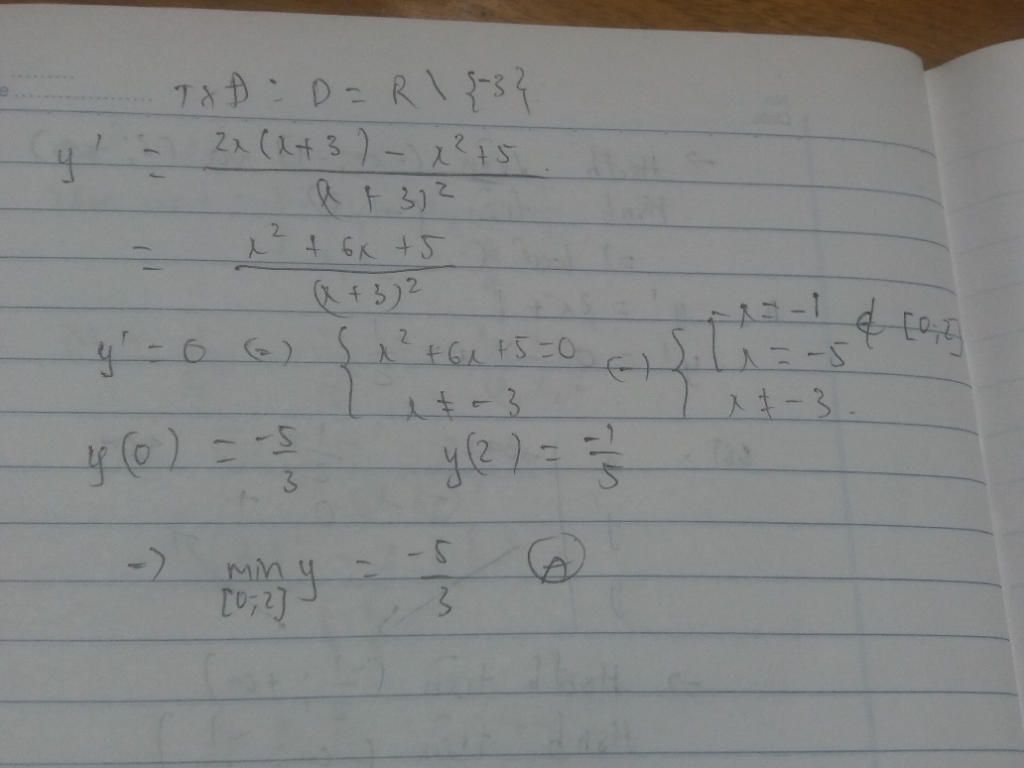 TXĐ : D = R \ {-3}
y' = \frac{2x(x+3) - x^2+5}{(x+3)^2}
= \frac{x^2+6x+5}{(x+3)^2}
y' = 0 (=) { x^2+6x+5=0 x ≠ -3 (=) { [ x = -1 x = -5 ∉ [0;2] x ≠ -3.
y(0) = \frac{-5}{3} y(2) = \frac{-1}{5}
=) min y [0;2] = \frac{-5}{3} Ⓐ